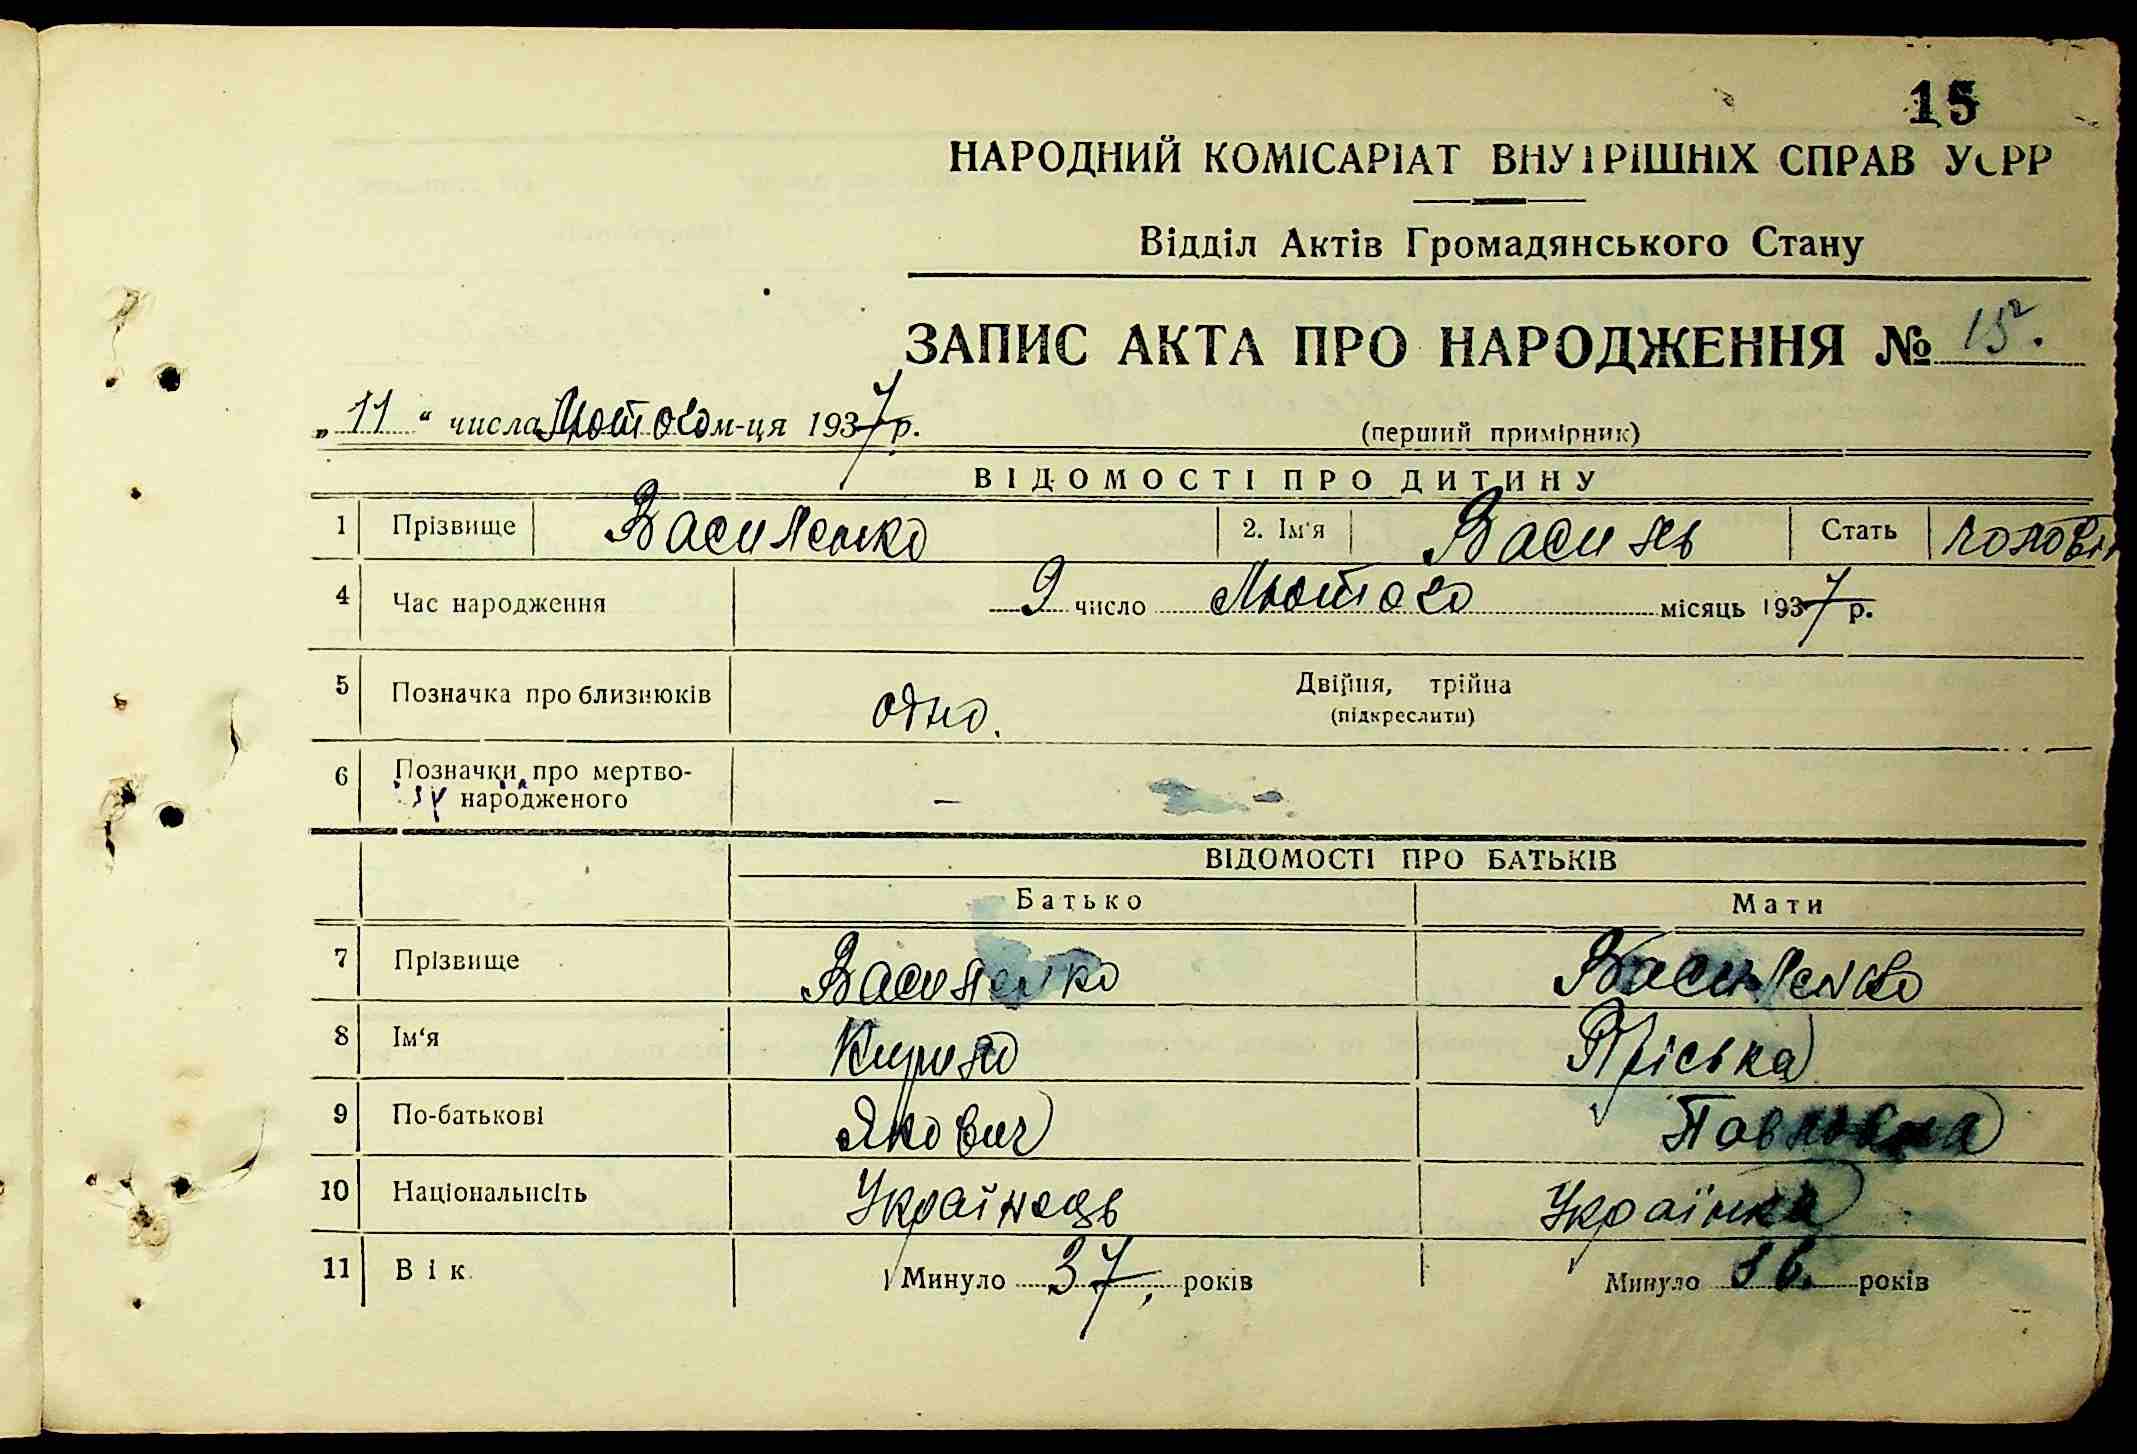 15
НАРОДНИЙ КОМІСАРІАТ ВНУТРІШНІХ СПРАВ УСРР
Відділ Актів Громадянського Стану
ЗАПИС АКТА ПРО НАРОДЖЕННЯ № 15.
„ 11 “ числа Лютого м-ця 1937 р.
(перший примірник)
ВІДОМОСТІ ПРО ДИТИНУ
1 Прізвище Василенко 2. Ім'я Василь Стать чолові
4 Час народження 9 число Лютого місяць 1937 р.
5 Позначка про близнюків одно. Двійня, трійна
(підкреслити)
6 Позначки про мертво-
народженого —
ВІДОМОСТІ ПРО БАТЬКІВ
Батько Мати
7 Прізвище Василенко Василенко
8 Ім'я Кирило Пріська
9 По-батькові Якович Павловна
10 Національність Українець Українка
11 Вік Минуло 37, років Минуло 36. років